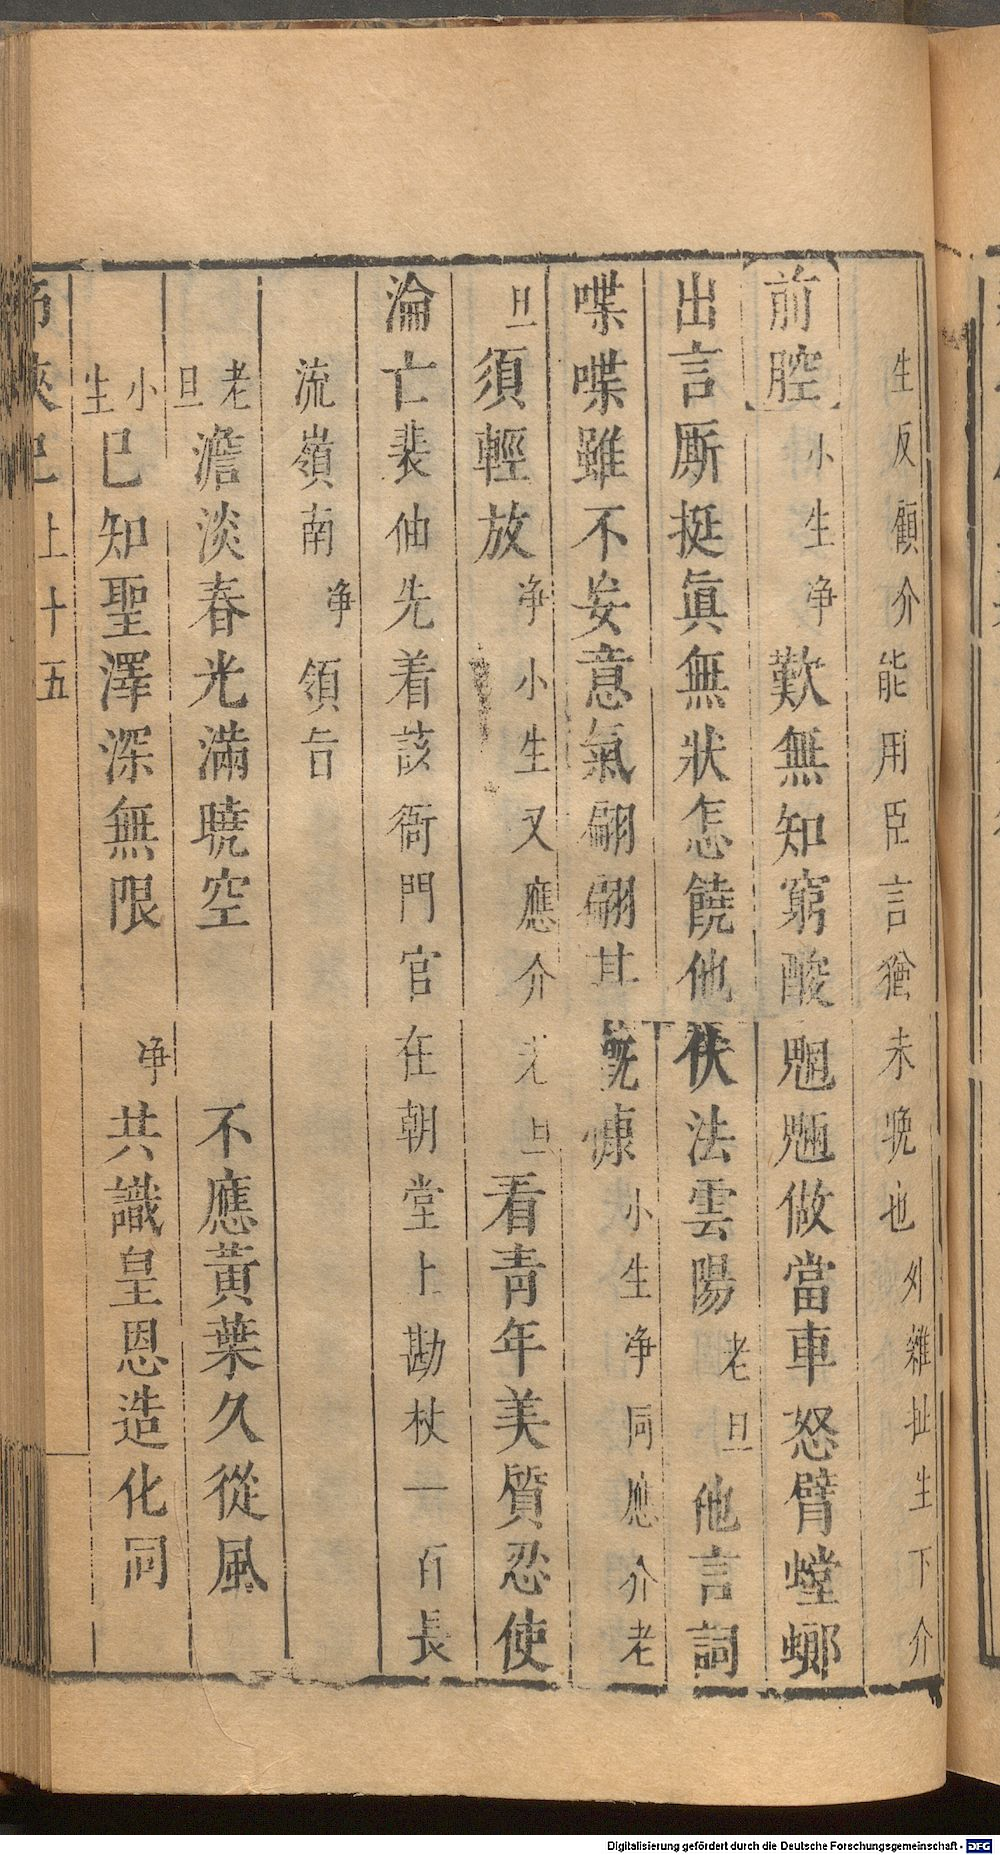 生反顧介能用臣言猶未晚也外雜扯生下介
前腔 小生净歎無知窮酸魍魎做當車怒臂螳螂
出言厮挺眞無狀怎饒他伏法雲陽老旦他言詞
喋喋雖不妄意氣翩翩其慨慷小生净同應介老
旦須輕放净小生又應介老旦看靑年美質忍使
淪亡裴伷先着該衙門官在朝堂上勘杖一百長
流嶺南净領旨
老旦澹淡春光滿曉空 不應黃葉久從風
小生巳知聖澤深無限 净共識皇恩造化同
上十五
Digitalisierung gefördert durch die Deutsche Forschungsgemeinschaft - DFG